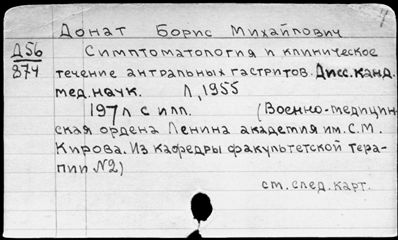 Донат Борис Михайлович
Д56
874
Симптоматология и клиническое
течение антральных гастритов. Дисс. канд.
мед. наук. Л, 1955
197 л с илл. (Военно-медицин-
ская ордена Ленина академия им. С.М.
Кирова. Из кафедры факультетской тера-
пии №2)
ст. след. карт.